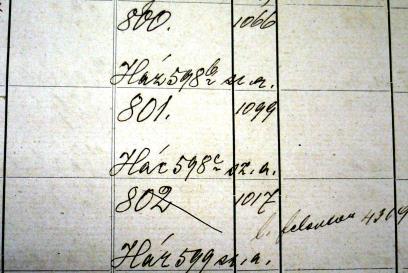 800. 1066
Ház 598 b sz. a.
801. 1099
Ház 598 c sz. a.
802 1017
4369
Ház 599 sz. a.